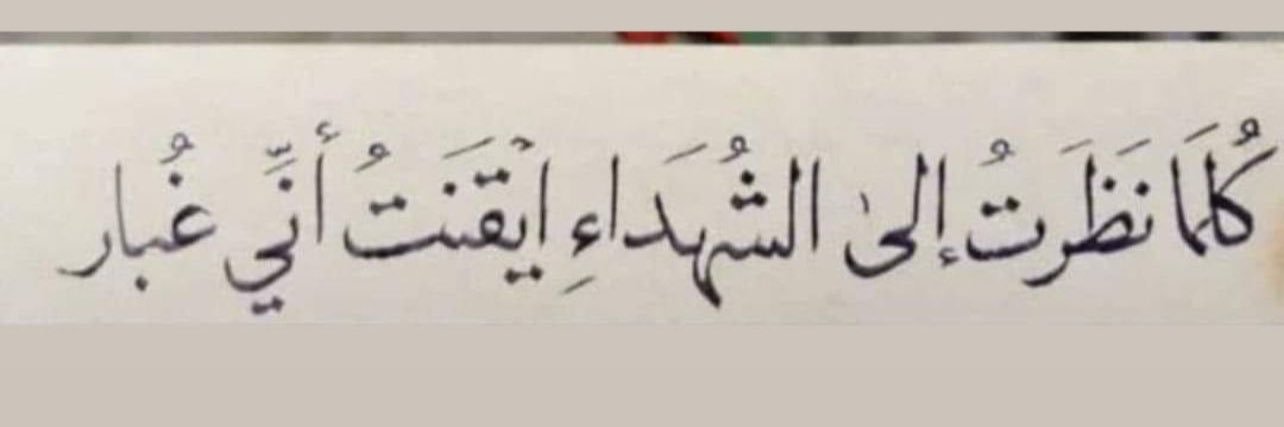 كُلَمَا نَظَرَتُ إلىٰ الشُهَداءِ ايْقَنَتُ أَنِّي غُبار